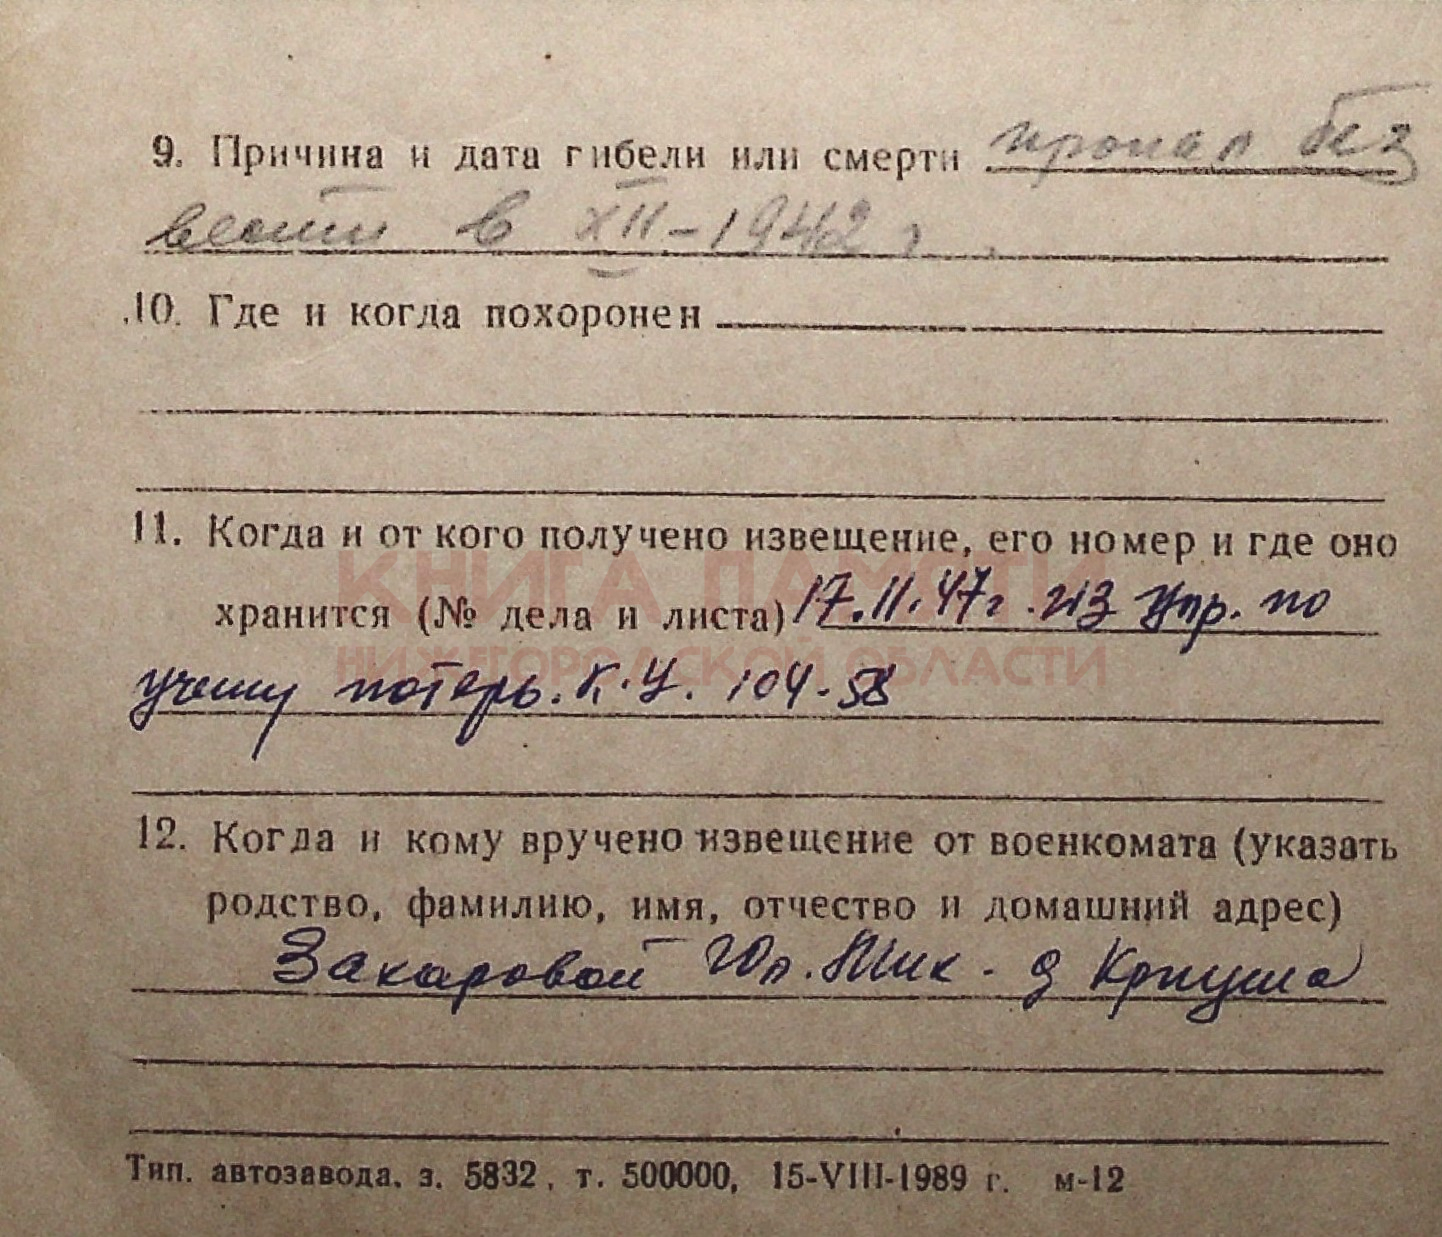 9. Причина и дата гибели или смерти пропал без
вести в XII-1942 г.
10. Где и когда похоронен
11. Когда и от кого получено извещение, его номер и где оно
КНИГА ПАМЯТИ
хранится (№ дела и листа) 17.11.47г. из Упр. по
НИЖЕГОРОДСКОЙ ОБЛАСТИ
учету потерь. К.У. 104-58
12. Когда и кому вручено извещение от военкомата (указать
родство, фамилию, имя, отчество и домашний адрес)
Захаровой Юл. Ник. д Криуша
Тип. автозавода. з. 5832, т. 500000, 15-VIII-1989 г. м-12